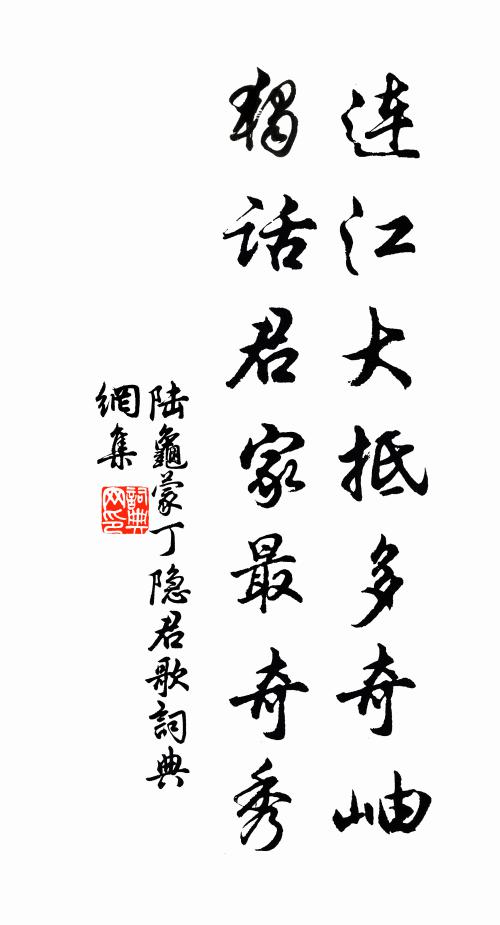 連江大抵多奇岫
獨話君家最奇秀
陆龜蒙丁隐君歌詞典
網集
詞典
网印